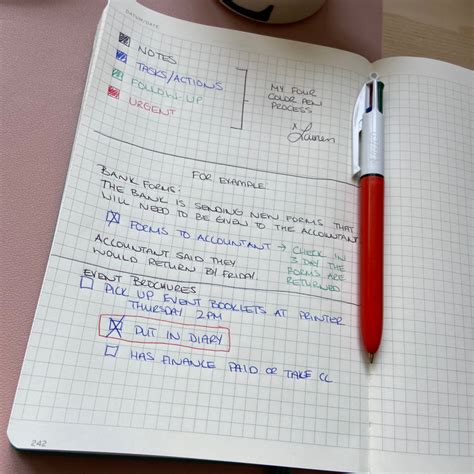 DATUM/DATE:
NOTES
TASKS/ACTIONS
FOLLOW-UP
URGENT
MY FOUR
COLOR PEN
PROCESS
x Lauren
FOR EXAMPLE
BANK FORMS:
THE BANK IS SENDING NEW FORMS THAT
WILL NEED TO BE GIVEN TO THE ACCOUNTANT
FORMS TO ACCOUNTANT → CHECK IN
3 DAY THE
FORMS ARE
RETURNED
ACCOUNTANT SAID THEY
WOULD RETURN BY FRIDAY.
EVENT BROCHURES
PICK UP EVENT BOOKLETS AT PRINTER
THURSDAY 2PM
PUT IN DIARY
HAS FINANCE PAID OR TAKE CC
242